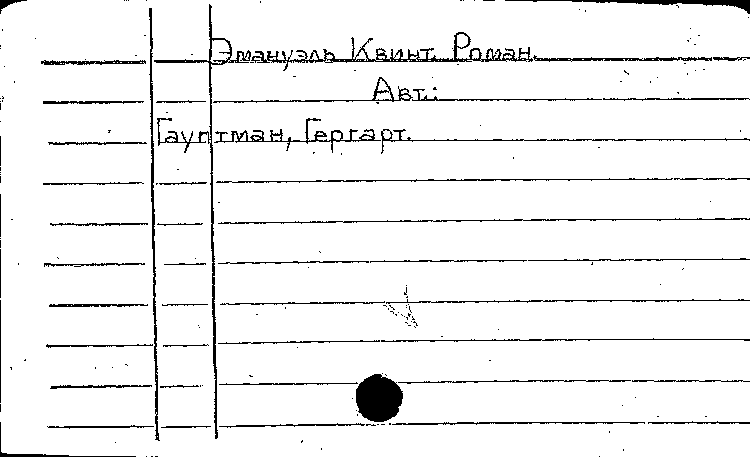 Эмануэль Квинт. Роман.
Авт.:
Гауптман, Гергарт.